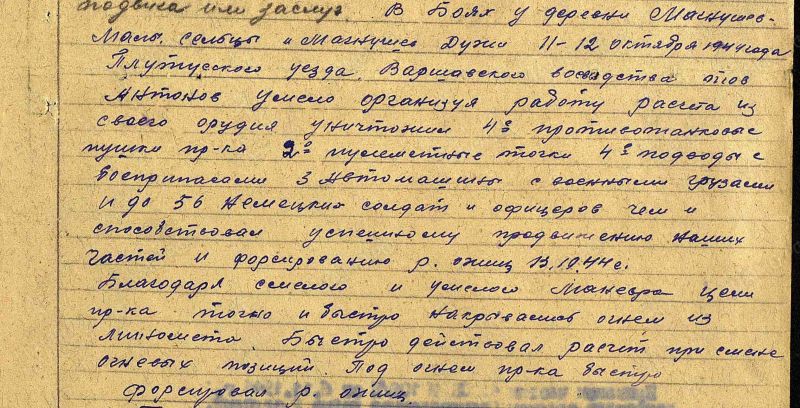 подвига или заслуг. В боях у деревни Магнушев-
Малы, сельцы и Магнушев Дужи 11-12 октября 1944 года
Плутусского уезда, Варшавского воеводства тов
Антонов умело организуя работу расчета из
своего орудия уничтожил 4е противотанковые
пушки пр-ка 2е пулеметные точки 4е подводы с
боеприпасами 3 Автомашины с военными грузами
и до 56 немецких солдат и офицеров чем и
способствовал успешному продвижению наших
частей и форсированию р. ожиц 13.10.44 г.
Благодаря смелого и умелого маневра цели
пр-ка точно и быстро накрывались огнем из
миномета. Быстро действовал расчет при смене
огневых позиций. Под огнем пр-ка быстро
форсировал р. ожиц.